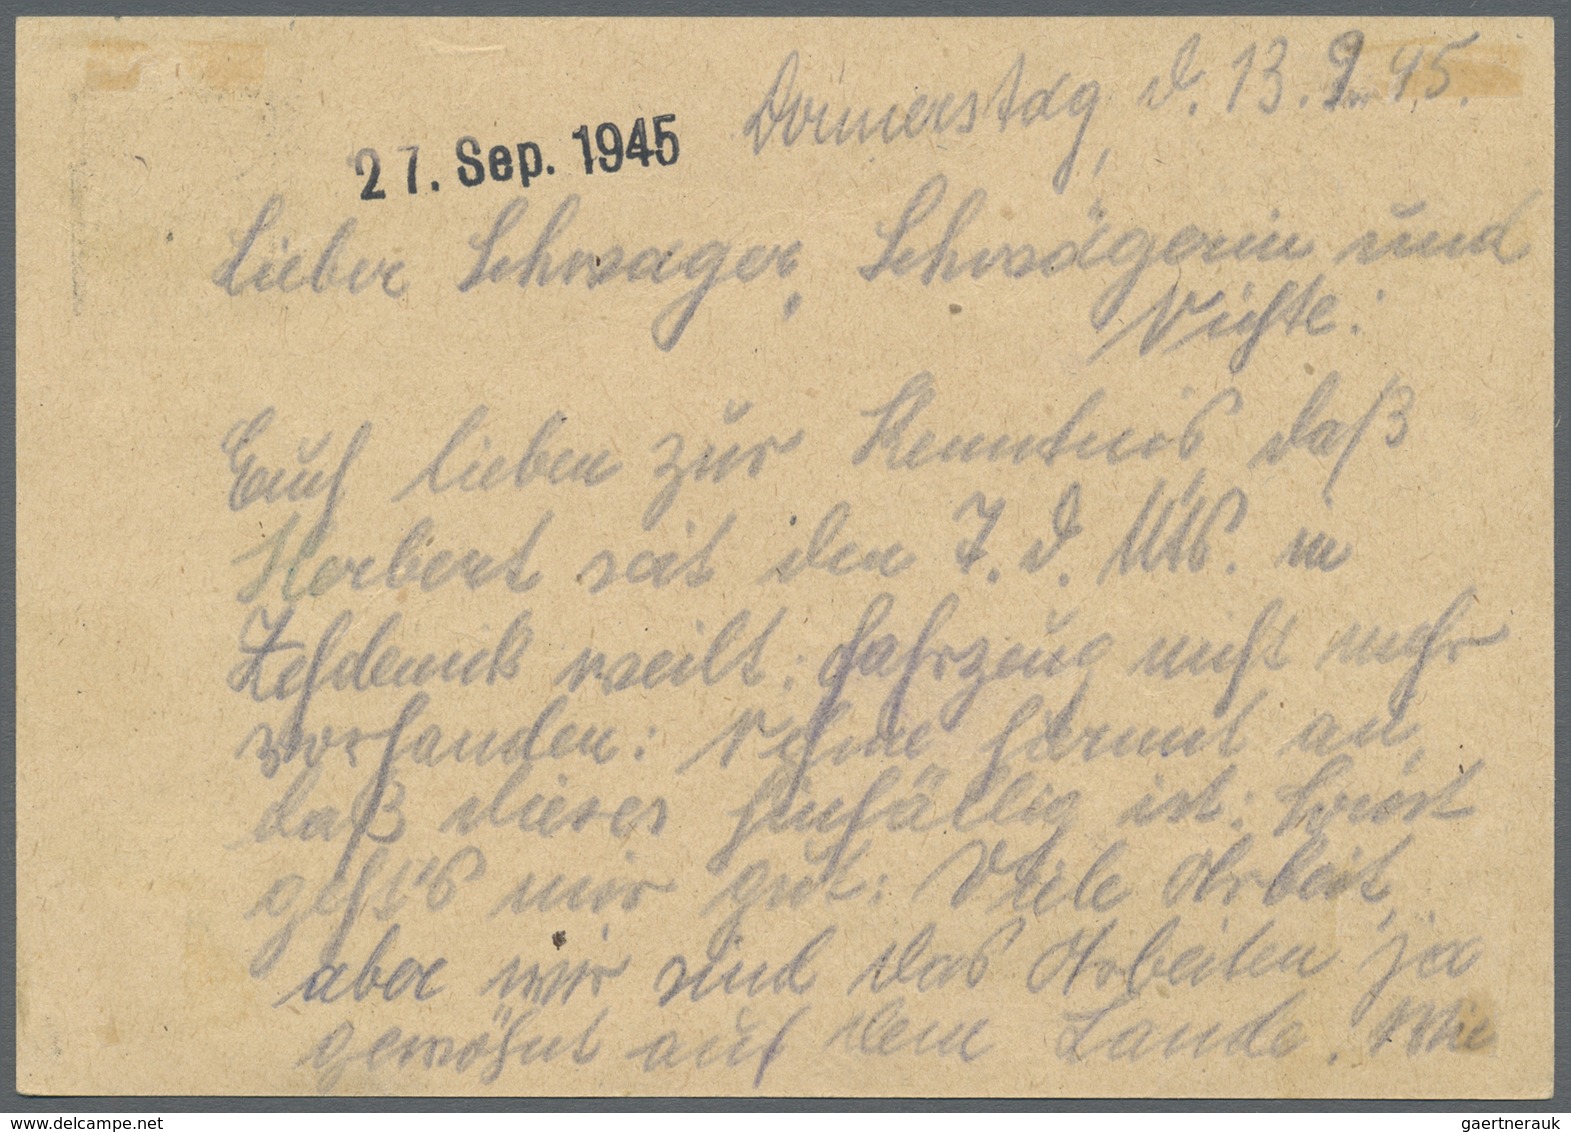 Donnerstag, d. 13. 9. 45.
27. Sep. 1945
Lieber Schwager, Schwägerin und
Nichte!
Euch lieben zur Kenntnis daß
Herbert seit den 7. d. Mts. in
Zehdenick weilt: Fahrzeug nicht mehr
vorhanden: Nehme hiermit an,
daß dieses hinfällig ist: Sonst
geht's mir gut: Viele Arbeit,
aber wir sind das Arbeiten ja
gewöhnt auf dem Lande. Wie
gaertnerauk